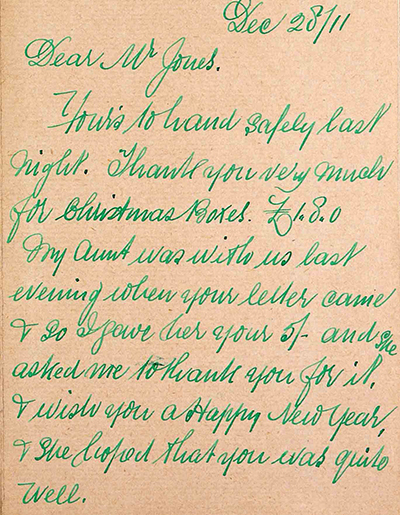 Dec 28/11
Dear Mr Jones.
Yours to hand safely last
night. Thank you very much
for Christmas Boxes. £1.8.0
My Aunt was with us last
evening when your letter came
& so I gave her your 5/- and she
asked me to thank you for it,
& wish you a Happy New Year,
& she hoped that you was quite
well.